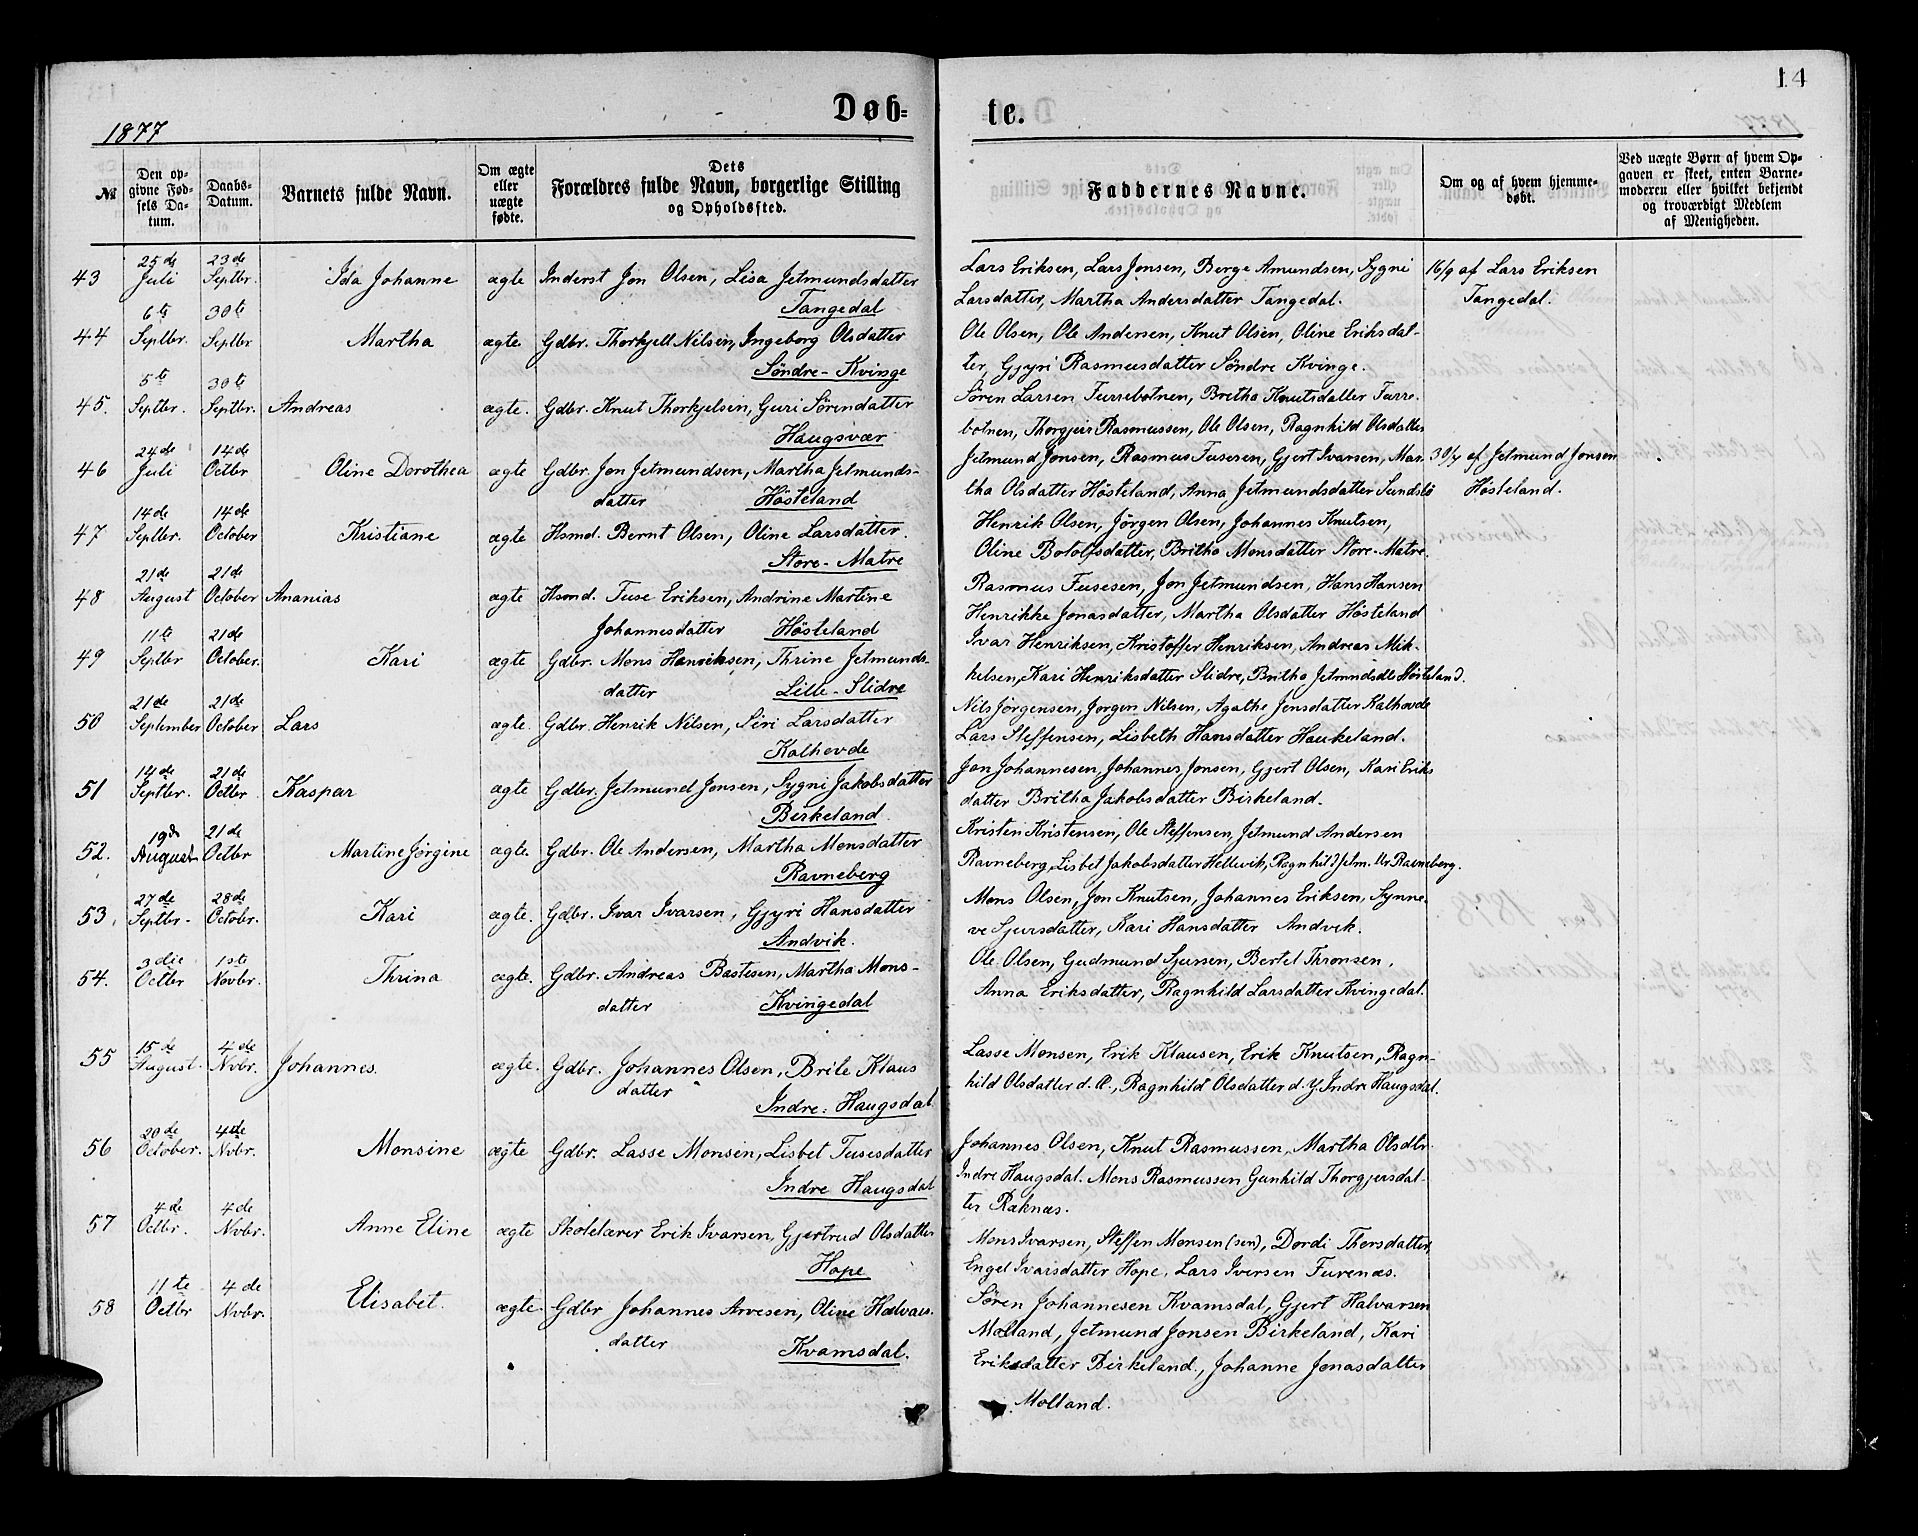 14
1877
Døb-
te.
№
Den op-
givne Fød-
sels Da-
tum.
Daabs-
Datum.
Barnets fulde Navn.
Om ægte
eller
uægte
fødte.
Dets
Forældres fulde Navn, borgerlige Stilling
og Opholdssted.
Faddernes Navne.
Om og af hvem hjemme-
døbt.
Ved uægte Børn af hvem Op-
gaven er skeet, enten Barne-
moderen eller hvilket bekjendt
og troværdigt Medlem
af Menigheden.
43 25de Juli 23de Septbr. Ida Johanne ægte Inderst Jon Olsen, Lisa Jetmundsdatter
Tangedal
Lars Eriksen, Lars Jonsen, Berge Amundsen, Sygni
Larsdatter, Martha Andersdatter Tangedal.
16/9 af Lars Eriksen
Tangedal.
44 6te Septbr. 30te Septbr Martha ægte Gdbr. Thorkjell Nilsen, Ingeborg Olsdatter
Söndre-Kvinge
Ole Olsen, Ole Andersen, Knut Olsen, Oline Eriksdat-
ter, Gjyri Rasmusdatter Söndre Kvinge.
45. 5te Septbr. 30te Septbr. Andreas ægte. Gdbr. Knut Thorkjelsen, Guri Sörendatter
Haugsvær
Sören Larsen Furrebotnen, Britha Knutsdatter Furre-
botnen, Thorgjeir Rasmussen, Ole Olsen, Ragnhild Olsdatter
46 24de Juli 14de Octbr Oline Dorothea ægte Gdbr. Jon Jetmundsen, Martha Jetmunds-
datter Hösteland
Jetmund Jonsen, Rasmus Fusesen, Gjert Ivarsen, Mar-
tha Olsdatter Hösteland, Anna Jetmundsdatter Sundsbö
30/7 af Jetmund Jonsen
Hösteland.
47 14de Septbr. 14de October Kristiane ægte Hsmd. Bernt Olsen, Oline Larsdatter.
Store-Matre
Henrik Olsen, Jörgen Olsen, Johannes Knutsen,
Oline Botolfsdatter, Britha Monsdatter Store-Matre.
48 21de August 21de October Ananias ægte Hsmd. Fuse Eriksen, Andrine Martine
Johannesdatter Hösteland
Rasmus Fusesen, Jon Jetmundsen, Hans Hansen
Henrikke Jonasdatter, Martha Olsdatter Hösteland
49 11te Septbr 21de October. Kari ægte Gdbr. Mons Henriksen, Thrine Jetmunds-
datter Lille-Slidre
Ivar Henriksen, Kristoffer Henriksen, Andreas Mik-
kelsen, Kari Henriksdatter Slidre, Britha Jetmndsdtr Hösteland.
50 21de September 21de October Lars ægte. Gdbr. Henrik Nilsen, Siri Larsdatter
Kalhovde
Nils Jörgensen, Jörgen Nilsen, Agathe Jensdatter Kalhovde
Lars Steffensen, Lisbeth Hansdatter Haukeland.
51 14de Septbr. 21de Octbr Kaspar ægte Gdbr. Jetmund Jonsen, Sygni Jakobsdatter
Birkeland
Jon Johannesen, Johannes Jonsen, Gjert Olsen, Kari Eriks
datter Britha Jakobsdatter Birkeland.
52. 19de August 21de Octbr Martine Jörgine ægte. Gdbr. Ole Andersen, Martha Monsdatter
Ravneberg
Kristen Kristensen, Ole Steffensen, Jetmund Andersen
Ravneberg, Lisbet Jakobsdatter Hellevik, Ragnhild Jetm. dtr Ravneberg.
53. 27de Septbr- 28de Octobr. Kari ægte. Gdbr. Ivar Ivarsen, Gjyri Hansdatter
Andvik.
Mons Olsen, Jon Knutsen, Johannes Eriksen, Synne-
ve Sjursdatter, Kari Hansdatter Andvik.
54. 3die Octbr 1ste Novbr. Thrina ægte. Gdbr. Andreas Bastesen, Martha Mons-
datter Kvingedal
Ole Olsen, Gudmund Sjursen, Bertel Thronsen,
Anna Eriksdatter, Ragnhild Larsdatter Kvingedal.
55 15de August. 4de Nvbr. Johannes. ægte. Gdbr. Johannes Olsen, Brite Klaus
datter Indre: Haugsdal
Lasse Monsen, Erik Klausen, Erik Knutsen, Ragn-
hild Olsdatter d. Æ., Ragnhild Olsdatter d. Y. Indre Haugsdal.
56 20de October. 4de Nvbr. Monsine ægte Gdbr. Lasse Monsen, Lisbet Fusesdatter
Indre Haugsdal
Johannes Olsen, Knut Rasmussen, Martha Olsdtr.
Indre Haugsdal. Mons Rasmussen Gunhild Thorgjersdat-
ter Raknæs.
57 4de Octbr. 4de Nvbr. Anne Eline ægte Skolelærer Erik Ivarsen, Gjertrud Olsdatter
Hope
Mons Ivarsen, Steffen Monsen (sen), Dordi Thorsdatter
Engel Ivarsdatter Hope, Lars Iversen Furenæs.
58 11te Octbr 4de Nvbr. Elisabet. ægte. Gdbr Johannes Arvesen, Oline Halvars-
datter Kvamsdal.
Sören Johannesen Kvamsdal, Gjert Halvarsen
Molland, Jetmund Jonsen Birkeland, Kari
Eriksdatter Birkeland, Johanne Jonasdatter
Molland.